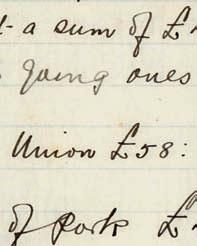 a sum of £
going ones
Union £58:
of Pork £